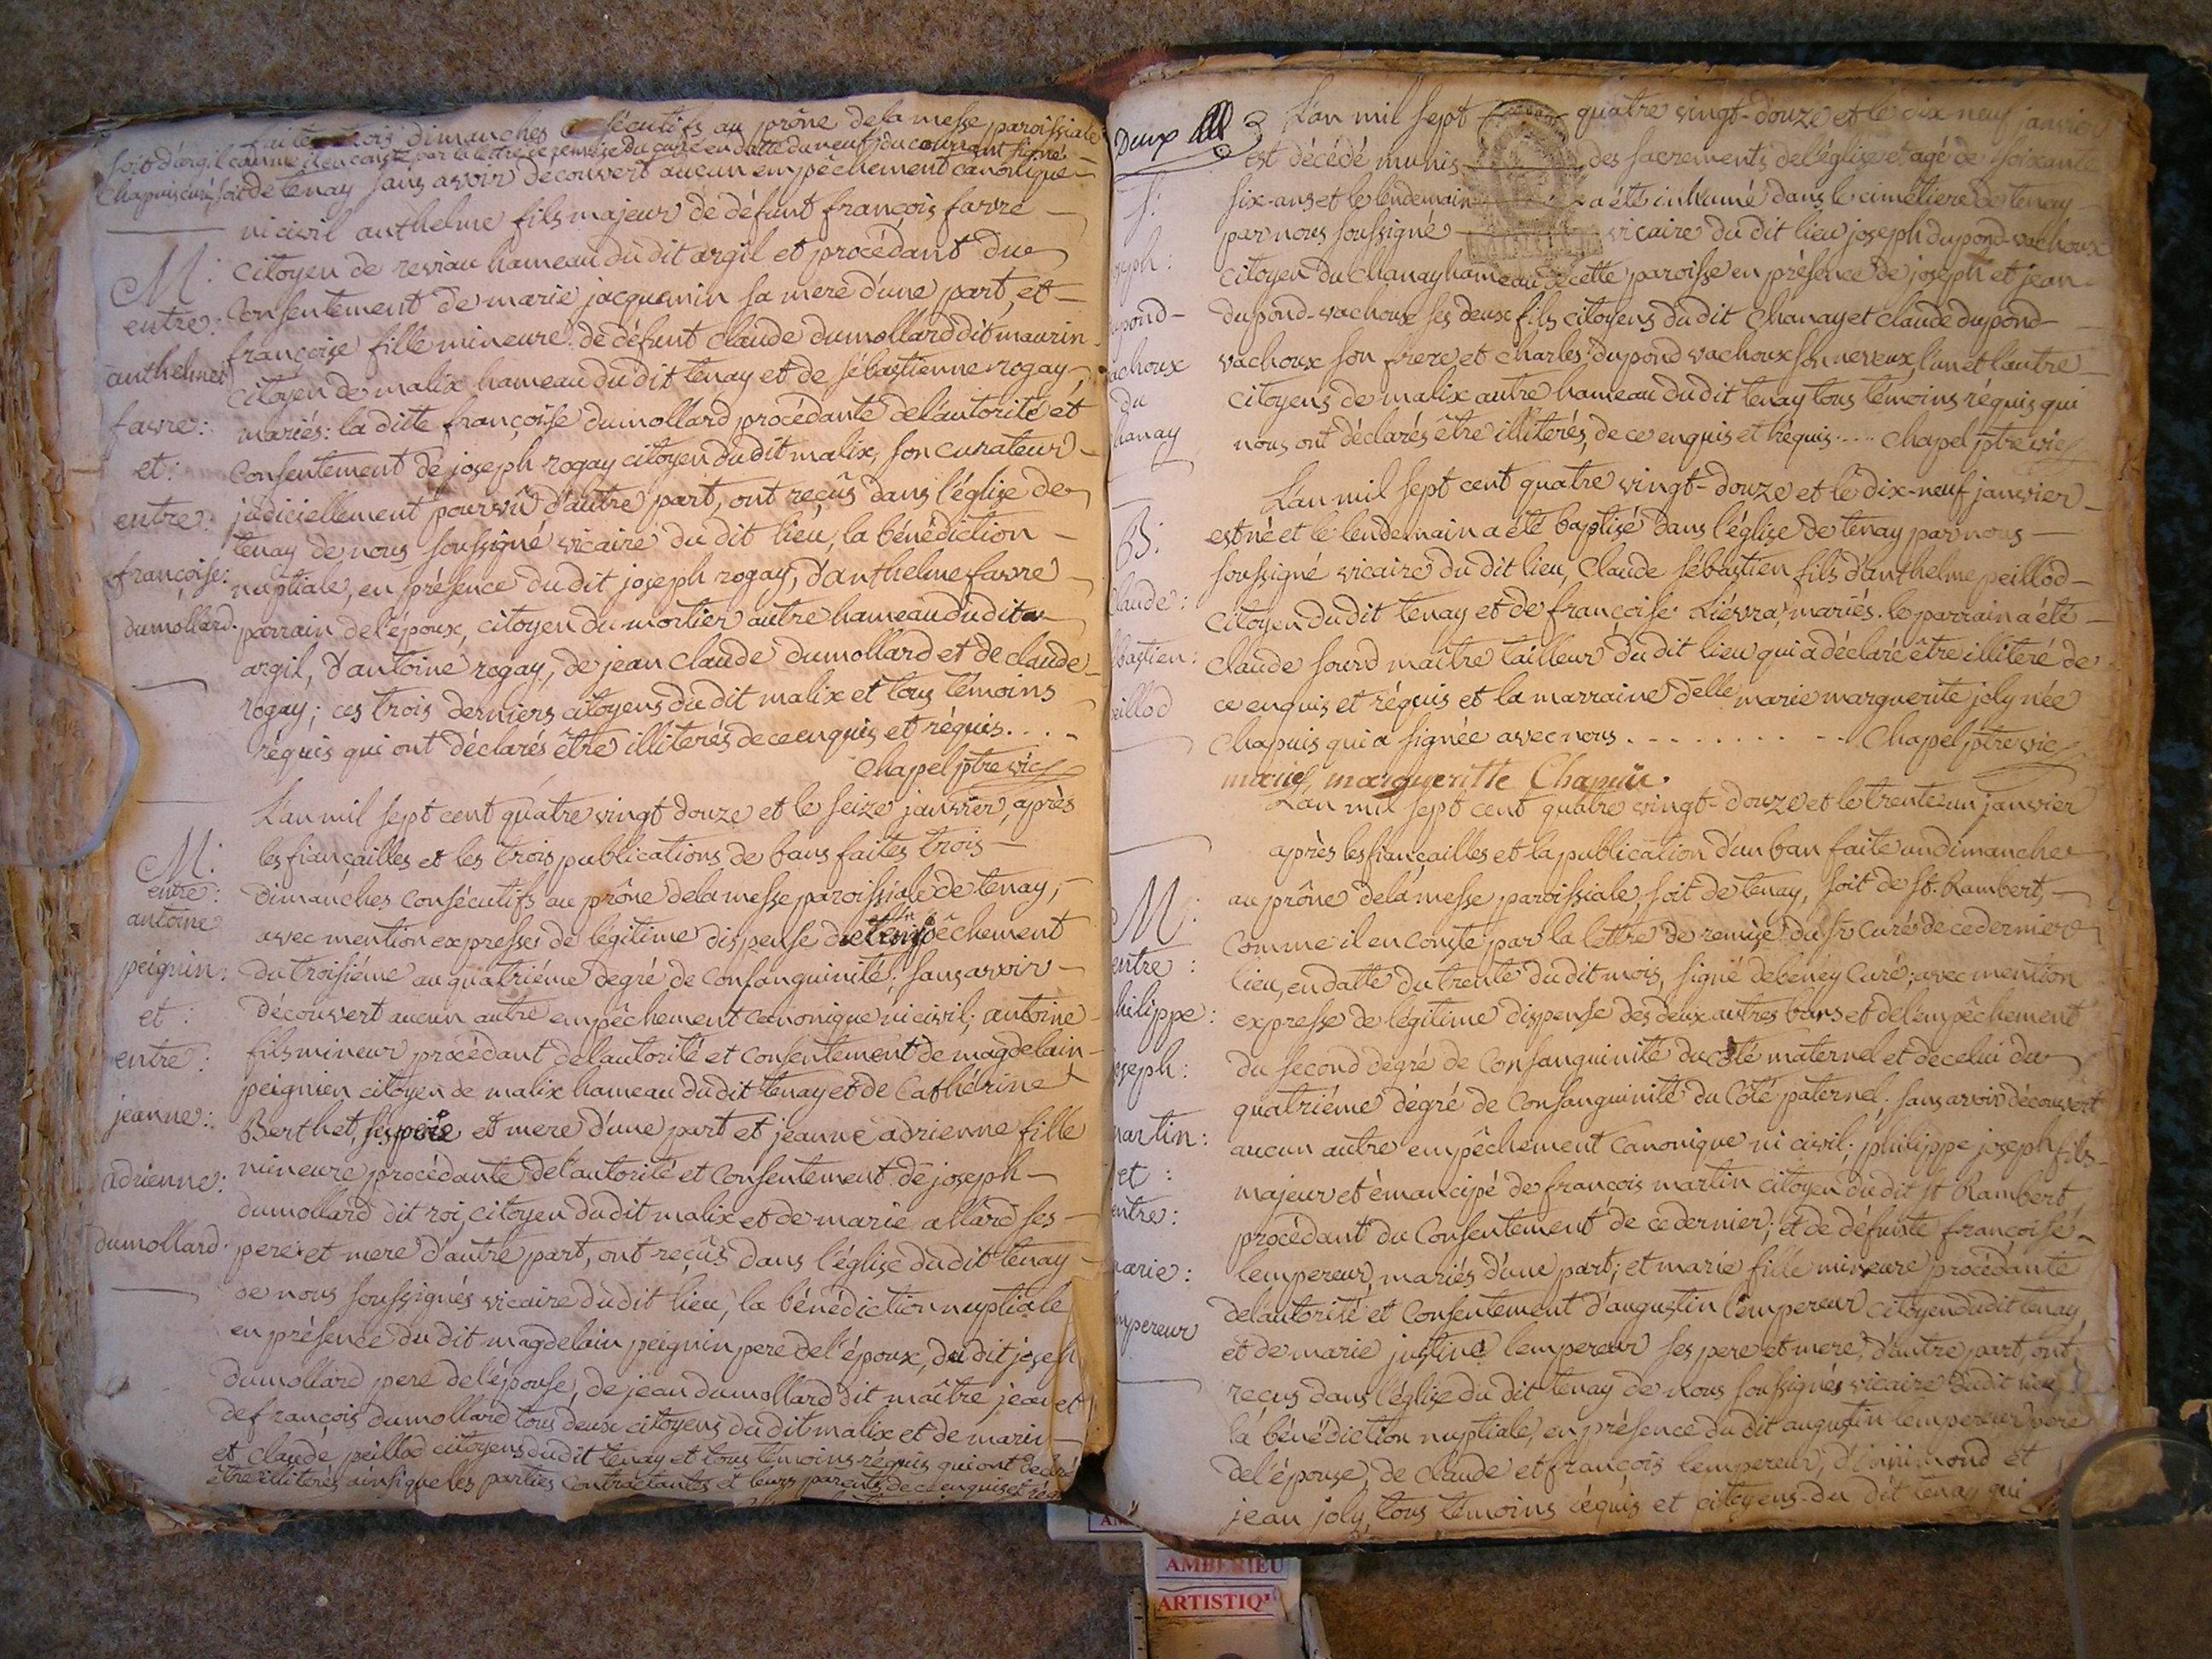 faites trois dimanches consécutifs au prône de la messe paroissiale
soit d'argil comme il en conste par la lettre de remise du curé en datte du neuf du courrant signé
Chapuis curé, soit de tenay sans avoir découvert aucun empêchement canonique
ni civil anthelme fils majeur de défunt françois favre
M: citoyen de reviau hameau du dit argil et procédant du
entre: Consentement de marie jacquemin sa mere d'une part, et
françoise fille mineure de défunt claude dumollard dit maurin
anthelme citoyen de malix hameau du dit tenay et de sébastienne rogay
favre: mariés: la ditte françoise dumollard procédante de l'autorité et
et: Consentement de joseph rogay citoyen du dit malix, son curateur
entre: judiciellement pourvû d'autre part, ont reçûs dans l'église de
tenay de nous soussigné vicaire du dit lieu, la bénédiction
françoise: nuptiale, en présence du dit joseph rogay, d'anthelme favre
dumollard. parrain de l'époux, citoyen du mortier autre hameau du dit
argil, d'antoine rogay, de jean claude dumollard et de claude
rogay; ces trois derniers citoyens du dit malix et tous témoins
réquis qui ont déclarés être illiterés de ce enquis et réquis....
Chapel ptre vic
L'an mil sept cent quatre vingt douze et le seize janvier, après
M: les fiançailles et les trois publications de bans faites trois
entre: dimanches consécutifs au prône de la messe paroissiale de tenay,
antoine avec mention expresse de légitime dispense de l'empêchement
peignin: du troisiéme au quatriéme degré de Consanguinité; sans avoir
et: découvert aucun autre empêchement canonique ni civil; antoine
entre: fils mineur procédant de l'autorité et consentement de magdelain
jeanne: peignien citoyen de malix hameau du dit tenay et de Cathérine
Berthet, ses pere et mere d'une part et jeanne adrienne fille
adrienne: mineure procédante de l'autorité et Consentement de joseph
dumollard dit roi, citoyen du dit malix et de marie allard ses
dumollard. pere et mere d'autre part, ont reçûs dans l'église du dit tenay
de nous soussignés vicaire du dit lieu, la bénédiction nuptiale
en présence du dit magdelain peignin pere de l'époux, du dit joseph
dumollard pere de l'épouse, de jean dumollard dit maître jean et
de françois dumollard tous deux citoyens du dit malix et de marin
et claude peillod citoyens du dit tenay et tous témoins réquis qui ont déclaré
être illiterés ainsi que les parties Contractantes et leurs parents, de ce enquis et réq
Deux
L'an mil sept quatre vingt-douze et le dix-neuf janvier
est décédé munis des sacrements de l'église et agé de soixante
S: six-ans et le lendemain a été inhumé dans le cimétiere de tenay
par nous soussigné vicaire du dit lieu joseph dupond-vachoux
seph: citoyen du chanay hameau de cette paroisse en présence de joseph et jean
upond- dupond-vachoux ses deux fils citoyens du dit Chanay et claude dupond
achoux vachoux son frere et charles dupond vachoux son neveux, l'un et l'autre
du citoyens de malix autre hameau du dit tenay tous témoins réquis qui
hanay nous ont déclarés être illitérés, de ce enquis et réquis.... Chapel ptre vic
L'an mil sept cent quatre vingt-douze et le dix-neuf janvier
B: est né et le lendemain a été baptisé dans l'église de tenay par nous
soussigné vicaire du dit lieu, Claude sébastien fils d'anthelme peillod
laude: citoyen du dit tenay et de françoise Liévra, mariés. le parrain a été
bastien: Claude sourd maître tailleur du dit lieu qui a déclaré être illiteré de
eillod ce enquis et réquis et la marraine delle marie marguerite joly née
Chapuis qui a signée avec nous.......... Chapel ptre vic
marie margueritte Chapuis.
L'an mil sept cent quatre vingt-douze et le trente un janvier
après les fiançailles et la publication d'un ban faite un dimanche
M: au prône de la messe paroissiale, soit de tenay, soit de st. Rambert,
Comme il en conste par la lettre de remise du sr Curé de ce dernier
entre: lieu, en datte du trente du dit mois, signé debeney Curé; avec mention
hilippe: expresse de légitime dispense des deux autres bans et de l'empêchement
oseph: du second degré de Consanguinité du côté maternel et de celui du
quatriéme dégré de Consanguinité du Côté paternel. sans avoir découvert
martin: aucun autre empêchement Canonique ni civil. philippe joseph fils
et: majeur et émancipé de françois martin citoyen du dit st Rambert
entre: procédant du Consentement de ce dernier; et de défunte françoise
marie: lempereur, mariés d'une part; et marie fille mineure procédante
de l'autorité et Consentement d'augustin l'empereur citoyen du dit tenay
mpereur et de marie justine lempereur ses pere et mere, d'autre part, ont
reçus dans l'église du dit tenay de nous soussignés vicaire du dit lieu
la bénédiction nuptiale, en présence du dit augustin lempereur pere
de l'épouse, de claude et françois lempereur, d'innimond et
jean joly, tous témoins réquis et citoyens du dit tenay qui
AMBERIEU
ARTISTIQU